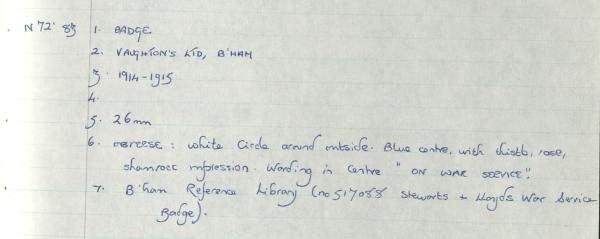 N72' 83 1. BADGE
2. VAUGHTON'S LTD, B'HAM
3. 1914-1915
4.
5. 26mm
6. OBVERSE : White Circle around outside. Blue centre, with thistle, rose,
shamrock impression. Wording in Centre "ON WAR SERVICE".
7. B'ham Reference Library (no 517088 Stewarts + Lloyds War Service
Badge).